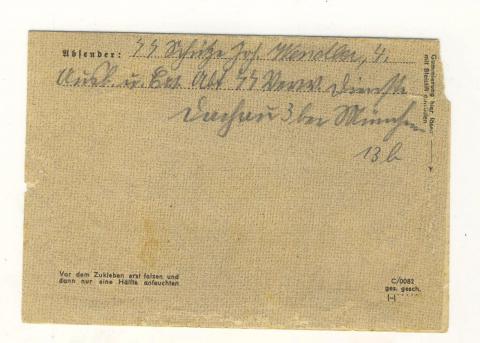 Absender: SS Schütze Joh. Wendler, 4.
Ausb. u. Ers. Abt SS Verw. Dienste
Dachau 3 bei München
13 b
Gummierung hier lösen
mit Bleistift
Vor dem Zukleben erst falzen und
dann nur eine Hälfte anfeuchten
C/0082
ges. gesch.